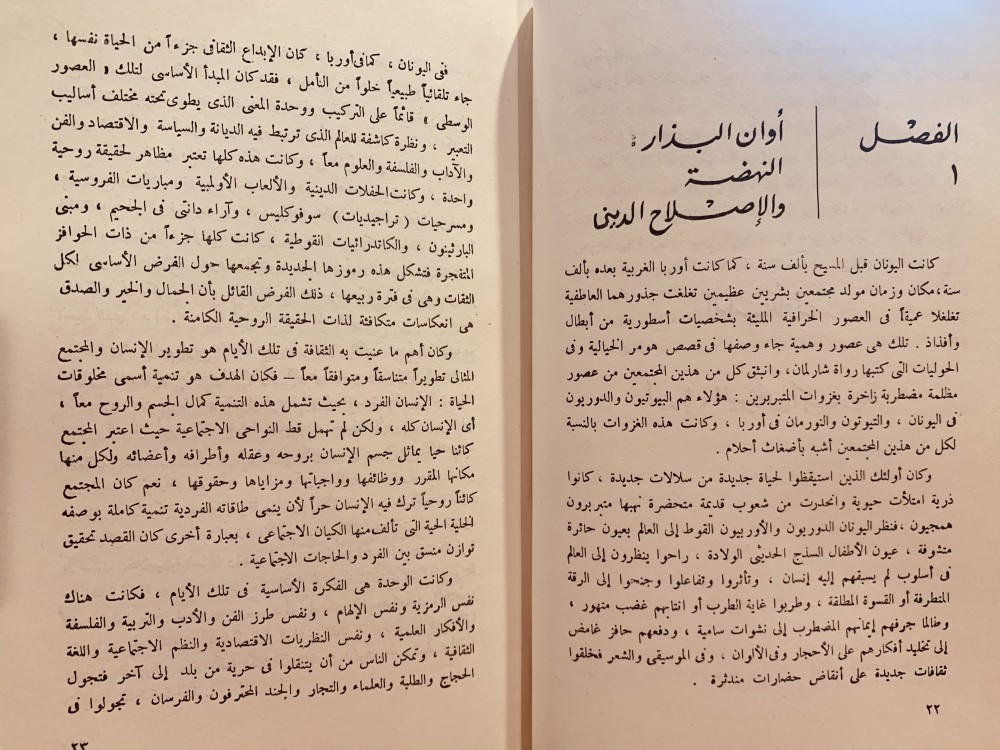 الفصل
١
أوان البذار :
النهضة
والإصلاح الديني
كانت اليونان قبل المسيح بألف سنة ، كما كانت أوربا الغربية بعده بألف
سنة ، مكان وزمان مولد مجتمعين بشريين عظيمين تغلغلت جذورهما العاطفية
تغلغلا عميقاً فى العصور الخرافية المليئة بشخصيات أسطورية من أبطال
وأفذاذ . تلك هى عصور وهمية جاء وصفها فى قصص هومر الخيالية وفى
الحوليات التى كتبها رواة شارلمان، وانبثق كل من هذين المجتمعين من عصور
مظلمة مضطربة زاخرة بغزوات المتبربرين : هؤلاء هم البيوتيون والدوريون
فى اليونان ، والتيوتون والنورمان فى أوربا ، وكانت هذه الغزوات بالنسبة
لكل من هذين المجتمعين أشبه بأضغاث أحلام .
وكان أولئك الذين استيقظوا لحياة جديدة من سلالات جديدة ، كانوا
ذرية امتلأت حيوية وانحدرت من شعوب قديمة متحضرة نهبها متبربرون
همجيون ، فنظر اليونان الدوريون والأوربيون القوط إلى العالم بعيون حائرة
متشوفة ، عيون الأطفال السذج الحديثى الولادة ، راحوا ينظرون إلى العالم
فى أسلوب لم يسبقهم إليه إنسان ، وتأثروا وتفاعلوا وجنحوا إلى الرقة
المتطرفة أو القسوة المطلقة ، وطربوا غاية الطرب أو انتابهم غضب متهور ،
وطالما جرفهم إيمانهم المضطرب إلى نشوات سامية ، ودفعهم حافز غامض
إلى تخليد أفكارهم على الأحجار وفى الألوان ، وفى الموسيقى والشعر فخلقوا
ثقافات جديدة على أنقاض حضارات مندثرة .
٢٢
ففى اليونان ، كما فى أوربا ، كان الإبداع الثقافى جزءاً من الحياة نفسها ،
جاء تلقائياً طبيعياً خلواً من التأمل ، فقد كان المبدأ الأساسى لتلك « العصور
الوسطى » قائماً على التركيب ووحدة المعنى الذى يطوى تحته مختلف أساليب
التعبير ، ونظرة كاشفة للعالم الذى ترتبط فيه الديانة والسياسة والاقتصاد والفن
والآداب والفلسفة والعلوم معاً ، وكانت هذه كلها تعتبر مظاهر لحقيقة روحية
واحدة ، وكانت الحفلات الدينية والألعاب الأولمبية ومباريات الفروسية ،
ومسرحيات ( تراجيديات ) سوفوكليس ، وآراء دانتى فى الجحيم ، ومبنى
البارثينون ، والكاتدرائيات القوطية ، كانت كلها جزءاً من ذات الحوافز
المتفجرة فتشكل هذه رموزها الجديدة وتجمعها حول الفرض الأساسى لكل
الثقات وهى فى فترة ربيعها ، ذلك الفرض القائل بأن الجمال والخير والصدق
هى انعكاسات متكافئة لذات الحقيقة الروحية الكامنة .
وكان أهم ما عنيت به الثقافة فى تلك الأيام هو تطوير الإنسان والمجتمع
المثالى تطويراً متناسقاً ومتوافقاً معاً – فكان الهدف هو تنمية أسمى مخلوقات
الحياة : الإنسان الفرد ، بحيث تشمل هذه التنمية كمال الجسم والروح معاً ،
أى الإنسان كله ، ولكن لم تهمل قط النواحى الاجتماعية حيث اعتبر المجتمع
كائنا حيا يماثل جسم الإنسان بروحه وعقله وأطرافه وأعضائه ولكل منها
مكانها المقرر ووظائفها وواجباتها ومزاياها وحقوقها ، نعم كان المجتمع
كائناً روحياً ترك فيه الإنسان حراً لأن ينمى طاقاته الفردية تنمية كاملة بوصفه
الخلية الحية التى تألف منها الكيان الاجتماعى ، بعبارة أخرى كان القصد تحقيق
توازن منسق بين الفرد والحاجات الاجتماعية .
وكانت الوحدة هى الفكرة الأساسية فى تلك الأيام ، فكانت هناك
نفس الرمزية ونفس الإلهام ، ونفس طرز الفن والأدب والتربية والفلسفة
والأفكار العلمية ، ونفس النظريات الاقتصادية والنظم الاجتماعية واللغة
الثقافية ، وتمكن الناس من أن يتنقلوا فى حرية من بلد إلى آخر فتجول
الحجاج والطلبة والعلماء والتجار والجند المحترفون والفرسان ، تجولوا فى
٢٣